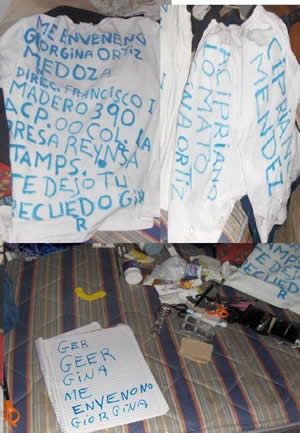 ME ENVENENO
GIORGINA ORTIZ
MEDOZA
DIREC. FRANCISCO I
MADERO 390
ACP. 00 COL. LA
PRESA REYNSA
TAMPS.
TE DEJO TU
RECUEDO GIN
R
CIPRIANO
MENDEZ
CIPRIANO
TOMATO
ORTIZ
TE DE
RECUER
GER
GEER
GINA
ME
ENVENONO
GIORGINA